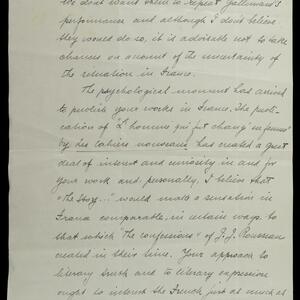 We don't want them to repeat Gallimard's
performance and although I don't believe
they would do so, it is advisable not to take
chances on account of the uncertainty of
the situation in France.
The psychological moment has arrived
to publish your works in France. The publi-
cation of "L'homme qui fut changé en femme"
by les Cahiers nouveaux, has created a great
deal of interest and curiosity in and for
your work and, personally, I believe that
"The Story.." would make a sensation in
France comparable, in certain ways, to
that which "the confessions" of J.J. Rousseau
created in their time. Your approach to
literary truth and to literary expression
ought to interest the French just as much as